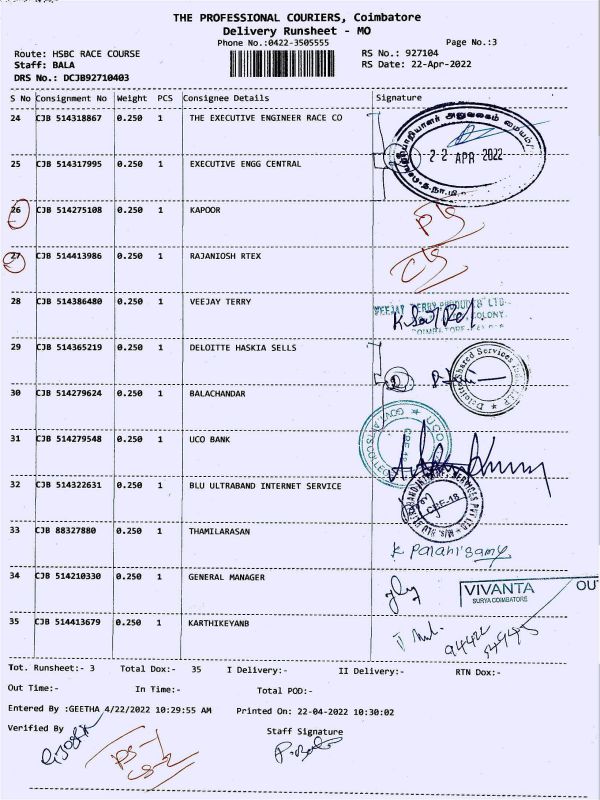 THE PROFESSIONAL COURIERS, Coimbatore
Delivery Runsheet - MO
Phone No.:0422-3505555
Page No.:3
Route: HSBC RACE COURSE
RS No.: 927104
Staff: BALA
RS Date: 22-Apr-2022
DRS No.: DCJB92710403
S No Consignment No Weight PCS Consignee Details Signature
24 CJB 514318867 0.250 1 THE EXECUTIVE ENGINEER RACE CO
22 APR 2022
25 CJB 514317995 0.250 1 EXECUTIVE ENGG CENTRAL
26 CJB 514275108 0.250 1 KAPOOR
27 CJB 514413986 0.250 1 RAJANIOSH RTEX
28 CJB 514386480 0.250 1 VEEJAY TERRY
VEEJAY TERRY PRODUCTS LTD
COLONY.
29 CJB 514365219 0.250 1 DELOITTE HASKIA SELLS
2
Deloitte Shared Services LLP
30 CJB 514279624 0.250 1 BALACHANDAR
31 CJB 514279548 0.250 1 UCO BANK
UCO
GOVT. ARTS COLLEGE
CBE-18
32 CJB 514322631 0.250 1 BLU ULTRABAND INTERNET SERVICE
CBE-18
33 CJB 88327880 0.250 1 THAMILARASAN
K Palanisamy
34 CJB 514210330 0.250 1 GENERAL MANAGER
VIVANTA
SURYA COIMBATORE
OUT
35 CJB 514413679 0.250 1 KARTHIKEYANB
Tot. Runsheet:- 3 Total Dox:- 35 I Delivery:- II Delivery:- RTN Dox:-
Out Time:- In Time:- Total POD:-
Entered By :GEETHA 4/22/2022 10:29:55 AM Printed On: 22-04-2022 10:30:02
Verified By Staff Signature